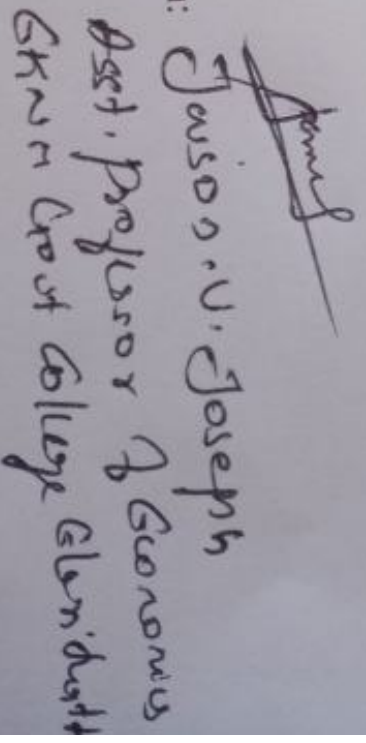 : Jaison.V.Joseph
Asst. Professor of Economics
GKNM Govt College